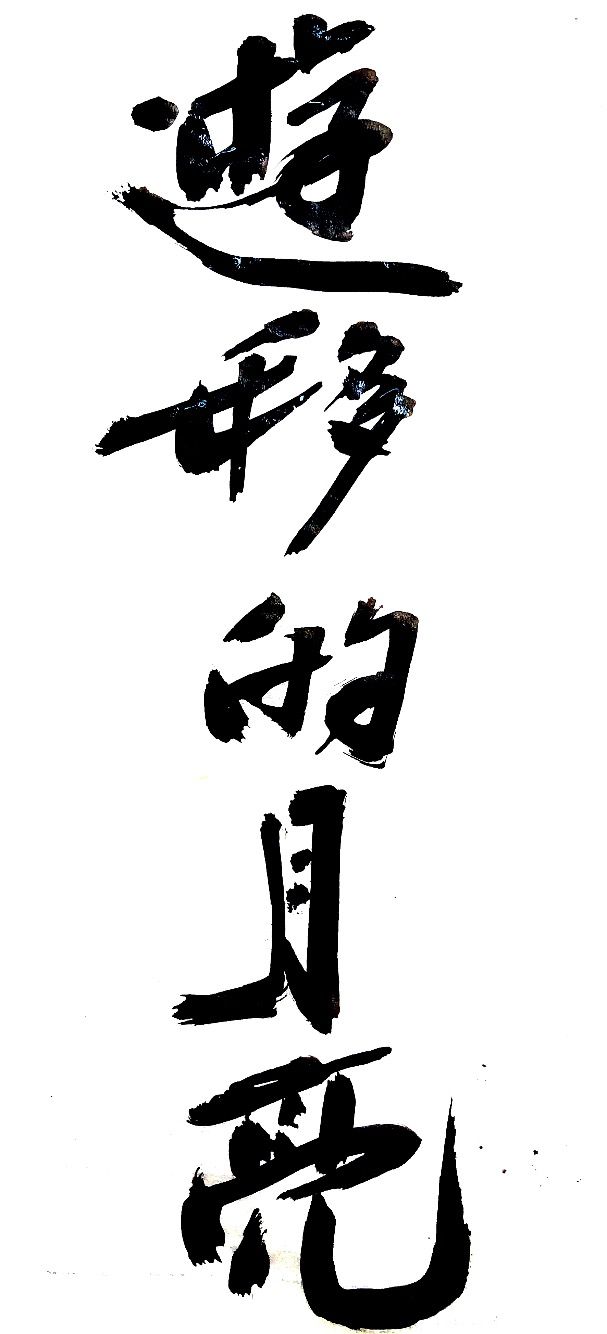 遊移的月亮